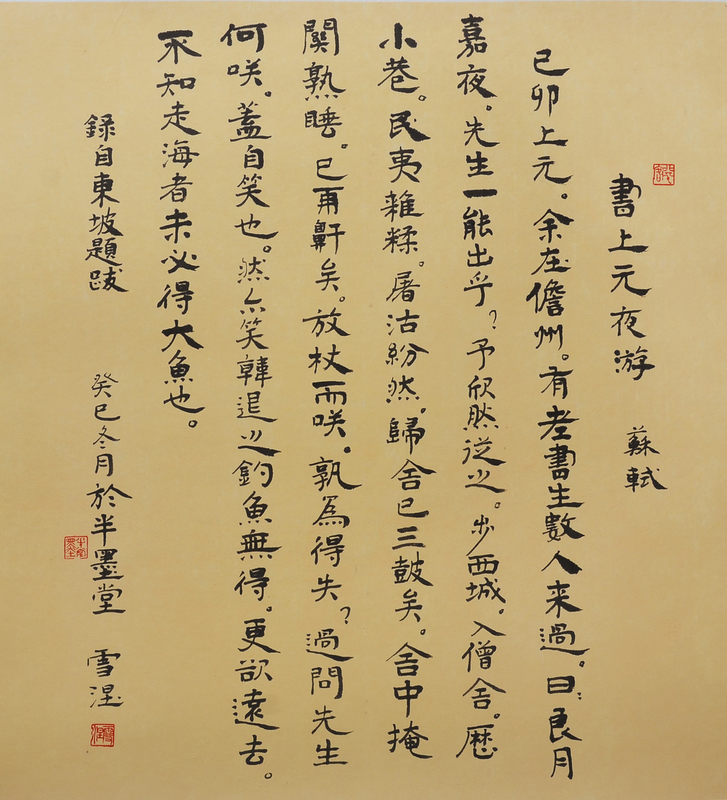 書上元夜游　蘇軾
己卯上元。余在儋州。有老書生數人来過。曰:良月
嘉夜。先生一能出乎?予欣然從之。步西城。入僧舍。歷
小巷。民夷雜糅。屠沽紛然。歸舍已三鼓矣。舍中掩
關熟睡。已再鼾矣。放杖而咲。孰為得失?過問先生
何咲。蓋自笑也。然亦笑韓退之釣魚無得。更欲遠去。
不知走海者未必得大魚也。
錄自東坡題跋　癸巳冬月於半墨堂　雪涅